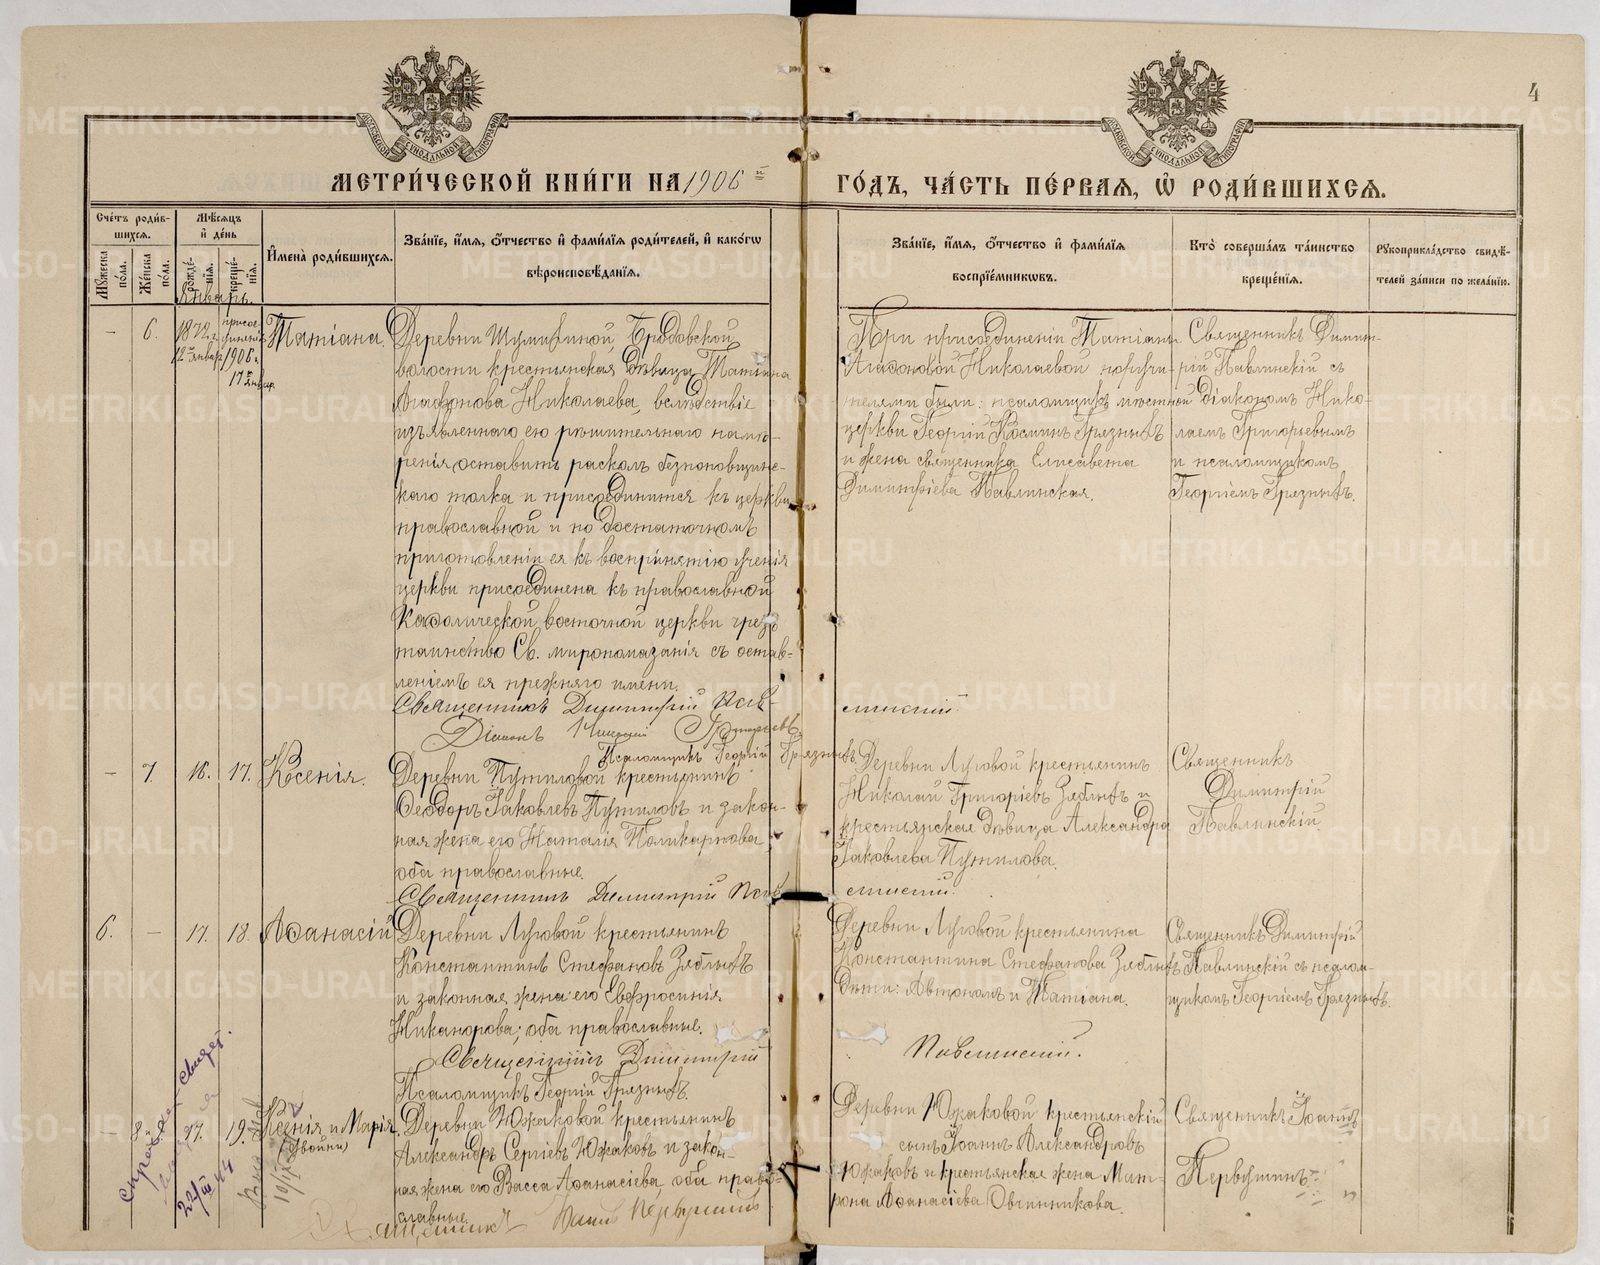 4
МЕТРИ́ЧЕСКОЙ КНИ́ГИ НА 1906 й
ГО́ДЪ, ЧА́СТЬ ПЕ́РВАЯ, Ѡ҆ РОДИ́ВШИХСЯ.
Счётъ роди́в-
шихся.
Му́жеска по́ла.
Же́нска по́ла.
Мѣ́сяцъ и де́нь
рожде́нїя.
креще́нїя.
И҆мена̀ роди́вшихся.
Зва́нїе, и҆́мя, ѻ҆́тчество и҆ фами́лїя роди́телей, и҆ како́гѡ
вѣроисповѣ́данїя.
Зва́нїе, и҆́мя, ѻ҆́тчество и҆ фами́лїя
воспрїе́мникѡвъ.
Кто̀ соверша́лъ та́инство
креще́нїя.
Рукоприкла́дство свидѣ́-
телей за́писи по жела́нїю.
Январь.
— 6. 1872 г. 12 января присоединенія 1906 г. 17 января
Татіана.
Деревни Шумихиной, Бродовской
волости крестьянская дѣвица Татіана
Агафонова Николаева, вслѣдствіе
изъявленнаго ею рѣшительнаго намѣ-
ренія оставить расколъ безпоповщинс-
каго толка и присоединится къ церкви
православной и по достаточномъ
приготовленіи ея къ воспринятію ученія
церкви присоединена къ православной
Каѳолической восточной церкви чрезъ
таинство Св. миропомазанія съ остав-
леніемъ ея прежняго имени.
Священникъ Димитрій Павлинскій.
Діаконъ Николай Григорьевъ
Псаломщикъ Георгій Грязныхъ.
При присоединеніи Татіаны
Агафоновой Николаевой поручи-
телями были: псаломщикъ мѣстной
церкви Георгій Косминъ Грязныхъ
и жена священника Елисавета
Димитріева Павлинская.
Священникъ Димит-
рій Павлинскій съ
діакономъ Нико-
лаемъ Григорьевымъ
и псаломщикомъ
Георгіемъ Грязныхъ.
— 7 16. 17. Ксенія.
Деревни Путиловой крестьянинъ
Ѳеодоръ Іаковлевъ Путиловъ и закон-
ная жена его Наталія Поликарпова,
оба православные.
Священникъ Димитрій Павлинскій.
Деревни Луговой крестьянинъ
Николай Григоріевъ Зяблыхъ и
крестьянская дѣвица Александра
Іаковлева Путилова.
Священникъ
Димитрій
Павлинскій.
6. — 17. 18. Аѳанасій
Деревни Луговой крестьянинъ
Константинъ Стефановъ Зяблыхъ
и законная жена его Евфросинія
Никанорова; оба православные.
Священникъ Димитрій Павлинскій.
Псаломщикъ Георгій Грязныхъ.
Деревни Луговой крестьянина
Константина Стефанова Зяблыхъ
дѣти: Автономъ и Татіана.
Священникъ Димитрій
Павлинскій съ псалом-
щикомъ Георгіемъ Грязныхъ.
8 17. 19. Ксенія и Марія.
(двойни)
Деревни Южаковой крестьянинъ
Александръ Сергіевъ Южаковъ и закон-
ная жена его Васса Аѳанасіева, оба право-
славные.
Священникъ Іоаннъ Первушинъ
Деревни Южаковой крестьянскій
сынъ Іоаннъ Александровъ
Южаковъ и крестьянская жена Мат-
рона Аѳанасіева Овчинникова.
Священникъ Іоаннъ
Первушинъ
22/III 44
METRIKI.GASO-URAL.RU